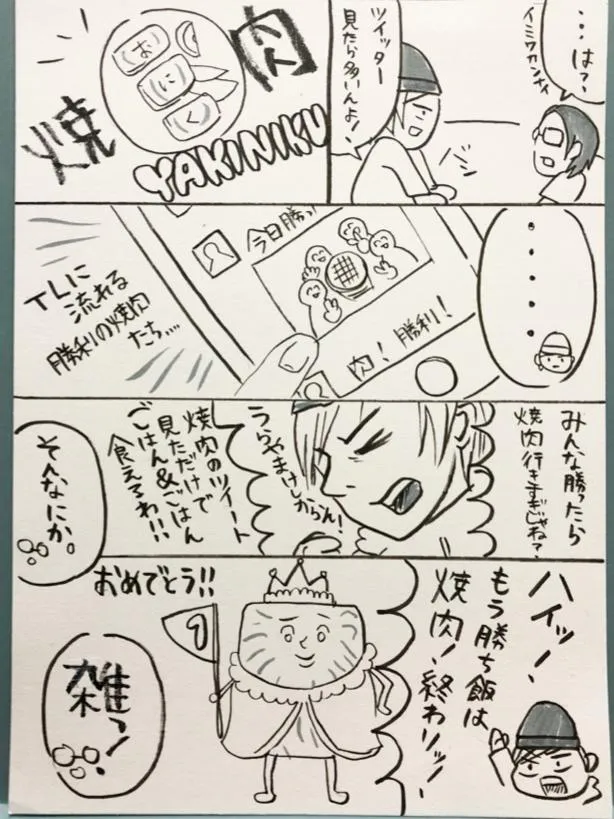 …は？
イミワカンナイ
ツイッター
見たら多いんよ！
バン
焼
肉
お
に
く
YAKINIKU
・・・・・
今日勝っ
肉！勝利！
TLに
流れる
勝利の焼肉
たち…
みんな勝ったら
焼肉行きすぎじゃね？
うらやまけしからん！
焼肉のツイート
見ただけで
ごはん&ごはん
食えるわ!!
そんなにか
ハイッ！
もう勝ち飯は
焼肉！終わりッ！
おめでとう!!
1
雑っ！